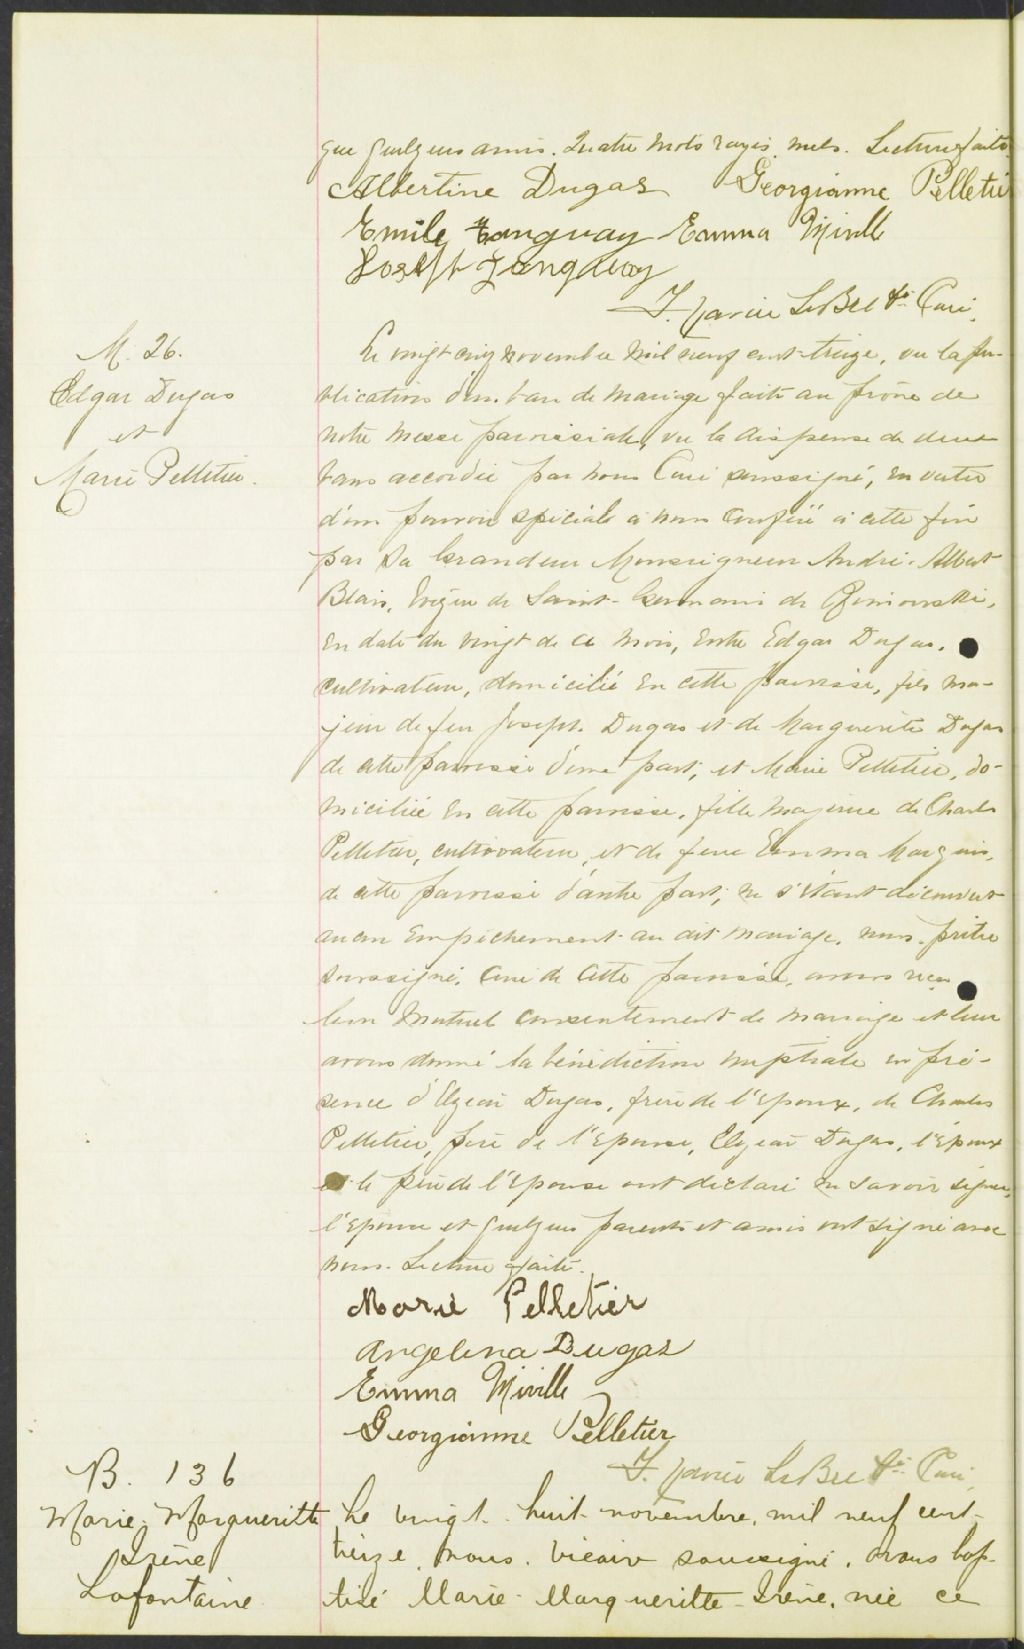 que quelques amis. Quatre mots rayés nuls. Lecture faite.
Albertine Dugas Georgianne Pelletier
Emile Tanguay Emma Miville
Joseph Tanguay
J. Xavier LeBel Ptre Curé.
M. 26.
Edgar Dugas
et
Marie Pelletier.
Le vingt cinq novembre mil neuf cent treize, vu la pu-
blication d'un ban de mariage faite au prône de
notre messe paroissiale, vu la dispense de deux
bans accordée par nous Curé soussigné, en vertu
d'un pouvoir spécial à nous conféré à cette fin
par Sa Grandeur Monseigneur André-Albert
Blais, Evêque de Saint-Germain de Rimouski,
en date du vingt de ce mois, entre Edgar Dugas,
cultivateur, domicilié en cette paroisse, fils ma-
jeur de feu Joseph Dugas et de Marguerite Dugas
de cette paroisse d'une part, et Marie Pelletier, do-
miciliée en cette paroisse, fille majeure de Charles
Pelletier, cultivateur, et de feue Emma Marquis,
de cette paroisse d'autre part, ne s'étant découvert
aucun empêchement au dit mariage, nous, prêtre
soussigné, Curé de cette paroisse, avons reçu
leur mutuel consentement de mariage et leur
avons donné la bénédiction nuptiale en pré-
sence d'Elzéar Dugas, frère de l'Epoux, de Charles
Pelletier, père de l'Epouse, Elzéar Dugas, l'Epoux
et le père de l'Epouse ont déclaré ne savoir signer,
l'Epouse et quelques parents et amis ont signé avec
nous. Lecture faite.
Marie Pelletier
Angelina Dugas
Emma Miville
Georgianne Pelletier
J. Xavier LeBel Ptre Curé.
B. 136
Marie-Margueritte
Irène
Lafontaine
Le vingt-huit novembre, mil neuf cent-
treize, nous, vicaire soussigné, avons bap-
tisé Marie-Margueritte-Irène, née ce